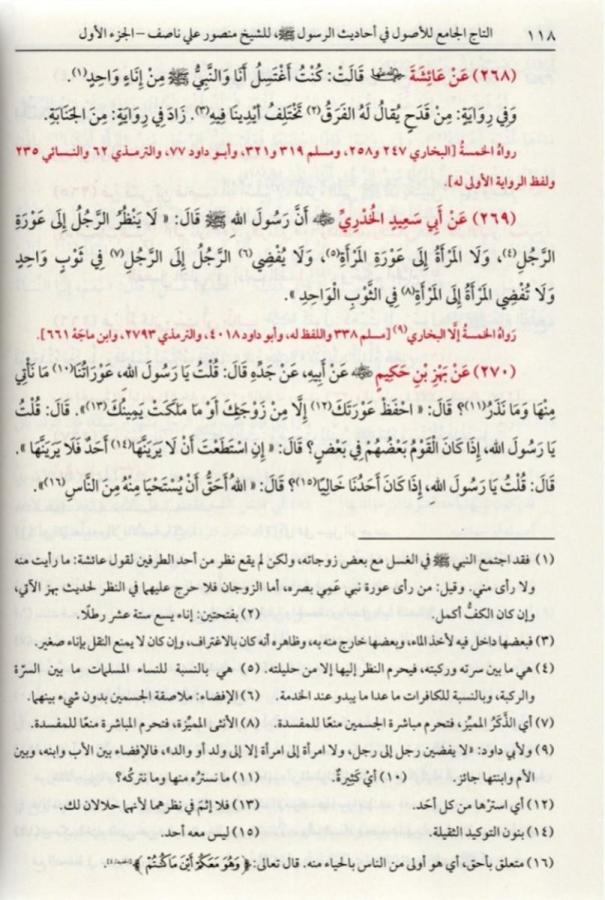 ١١٨ التاج الجامع للأصول في أحاديث الرسول ﷺ، للشيخ منصور علي ناصف – الجزء الأول
(٢٦٨) عَنْ عَائِشَةَ قَالَتْ: كُنْتُ أَغْتَسِلُ أَنَا وَالنَّبِيُّ ﷺ مِنْ إِنَاءٍ وَاحِدٍ(١).
وَفِي رِوَايَةٍ: مِنْ قَدَحٍ يُقالُ لَهُ الفَرَقُ(٢) تَخْتَلِفُ أَيْدِينَا فِيهِ(٣). زَادَ فِي رِوَايَةٍ: مِنَ الجَنَابَةِ.
رواهُ الخمسةُ [البخاري ٢٤٧ و٢٥٨، ومسلم ٣١٩ و٣٢١، وأبو داود ٧٧، والترمذي ٦٢ والنسائي ٢٣٥
ولفظ الرواية الأولى له].
(٢٦٩) عَنْ أَبِي سَعِيدٍ الْخُدْرِيِّ أَنَّ رَسُولَ اللهِ ﷺ قَالَ: « لَا يَنْظُرُ الرَّجُلُ إِلَى عَوْرَةِ
الرَّجُلِ(٤)، وَلَا المَرْأَةُ إِلَى عَوْرَةِ المَرْأَةِ(٥)، وَلَا يُفْضِي(٦) الرَّجُلُ إِلَى الرَّجُلِ(٧) فِي ثَوْبٍ وَاحِدٍ
وَلَا تُفْضِي المَرْأَةُ إِلَى المَرْأَةِ(٨) فِي الثَّوْبِ الْوَاحِدِ ».
رَوَاهُ الخمسةُ إِلَّا البخاري(٩) [مسلم ٣٣٨ واللفظ له، وأبو داود ٤٠١٨، والترمذي ٢٧٩٣، وابن ماجَهْ ٦٦١].
(٢٧٠) عَنْ بَهْزِ بْنِ حَكِيمٍ عَنْ أَبِيهِ، عَنْ جَدِّهِ قَالَ: قُلْتُ يَا رَسُولَ الله، عَوْرَاتُنَا(١٠) مَا نَأْتِي
مِنْهَا وَمَا نَذَرُ(١١)؟ قَالَ: « احْفَظْ عَوْرَتَكَ(١٢) إِلَّا مِنْ زَوْجَتِكَ أَوْ مَا مَلَكَتْ يَمِينُكَ(١٣)». قَالَ: قُلْتُ
يَا رَسُولَ الله، إِذَا كَانَ القَوْمُ بَعْضُهُمْ فِي بَعْضٍ؟ قَالَ: « إِنِ اسْتَطَعْتَ أَنْ لَا يَرَيَنَّهَا(١٤) أَحَدٌ فَلَا يَرَيَنَّهَا ».
قَالَ: قُلْتُ يَا رَسُولَ الله، إِذَا كَانَ أَحَدُنَا خَالِيًا(١٥)؟ قَالَ: « اللهُ أَحَقُّ أَنْ يُسْتَحْيَا مِنْهُ مِنَ النَّاسِ(١٦)».
(١) فقد اجتمع النبي ﷺ في الغسل مع بعض زوجاته، ولكن لم يقع نظر من أحد الطرفين لقول عائشة: ما رأيت منه
ولا رأى مني. وقيل: من رأى عورة نبي عَمِي بصره، أما الزوجان فلا حرج عليهما في النظر لحديث بهز الآتي،
وإن كان الكفُّ أكمل. (٢) بفتحتين: إناء يسع ستة عشر رطلًا.
(٣) فبعضها داخل فيه لأخذ الماء، وبعضها خارج منه به، وظاهره أنه كان بالاغتراف، وإن كان لا يمنع النقل بإناء صغير.
(٤) هي ما بين سرته وركبته، فيحرم النظر إليها إلا من حليلته. (٥) هي بالنسبة للنساء المسلمات ما بين السرّة
والركبة، وبالنسبة للكافرات ما عدا ما يبدو عند الخدمة. (٦) الإفضاء: ملاصقة الجسمين بدون شيء بينهما.
(٧) أي الذَّكَرُ المميِّز، فتحرم مباشرة الجسمين منعًا للمفسدة. (٨) الأنثى المميِّزة، فتحرم المباشرة منعًا للمفسدة.
(٩) ولأبي داود: «لا يفضين رجل إلى رجل، ولا امرأة إلى امرأة إلا إلى ولد أو والد»، فالإفضاء بين الأب وابنه، وبين
الأم وابنتها جائز. (١٠) أيْ كَثيرةٌ. (١١) ما نستُره منها وما نتركُه؟
(١٢) أي استرْها من كل أحَد. (١٣) فلا إثمَ في نظرهما لأنهما حلالان لك.
(١٤) بنون التوكيد الثقيلة. (١٥) ليس معه أحد.
(١٦) متعلق بأحق، أي هو أولى من الناس بالحياء منه. قال تعالى: ﴿وَهُوَ مَعَكُمْ أَيْنَ مَا كُنتُمْ﴾.